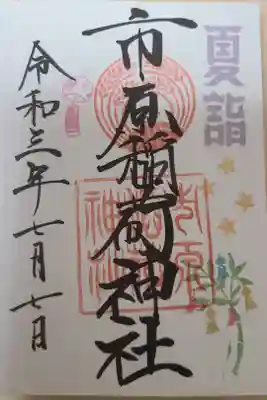 夏詣
市原稲荷神社
令和三年七月七日